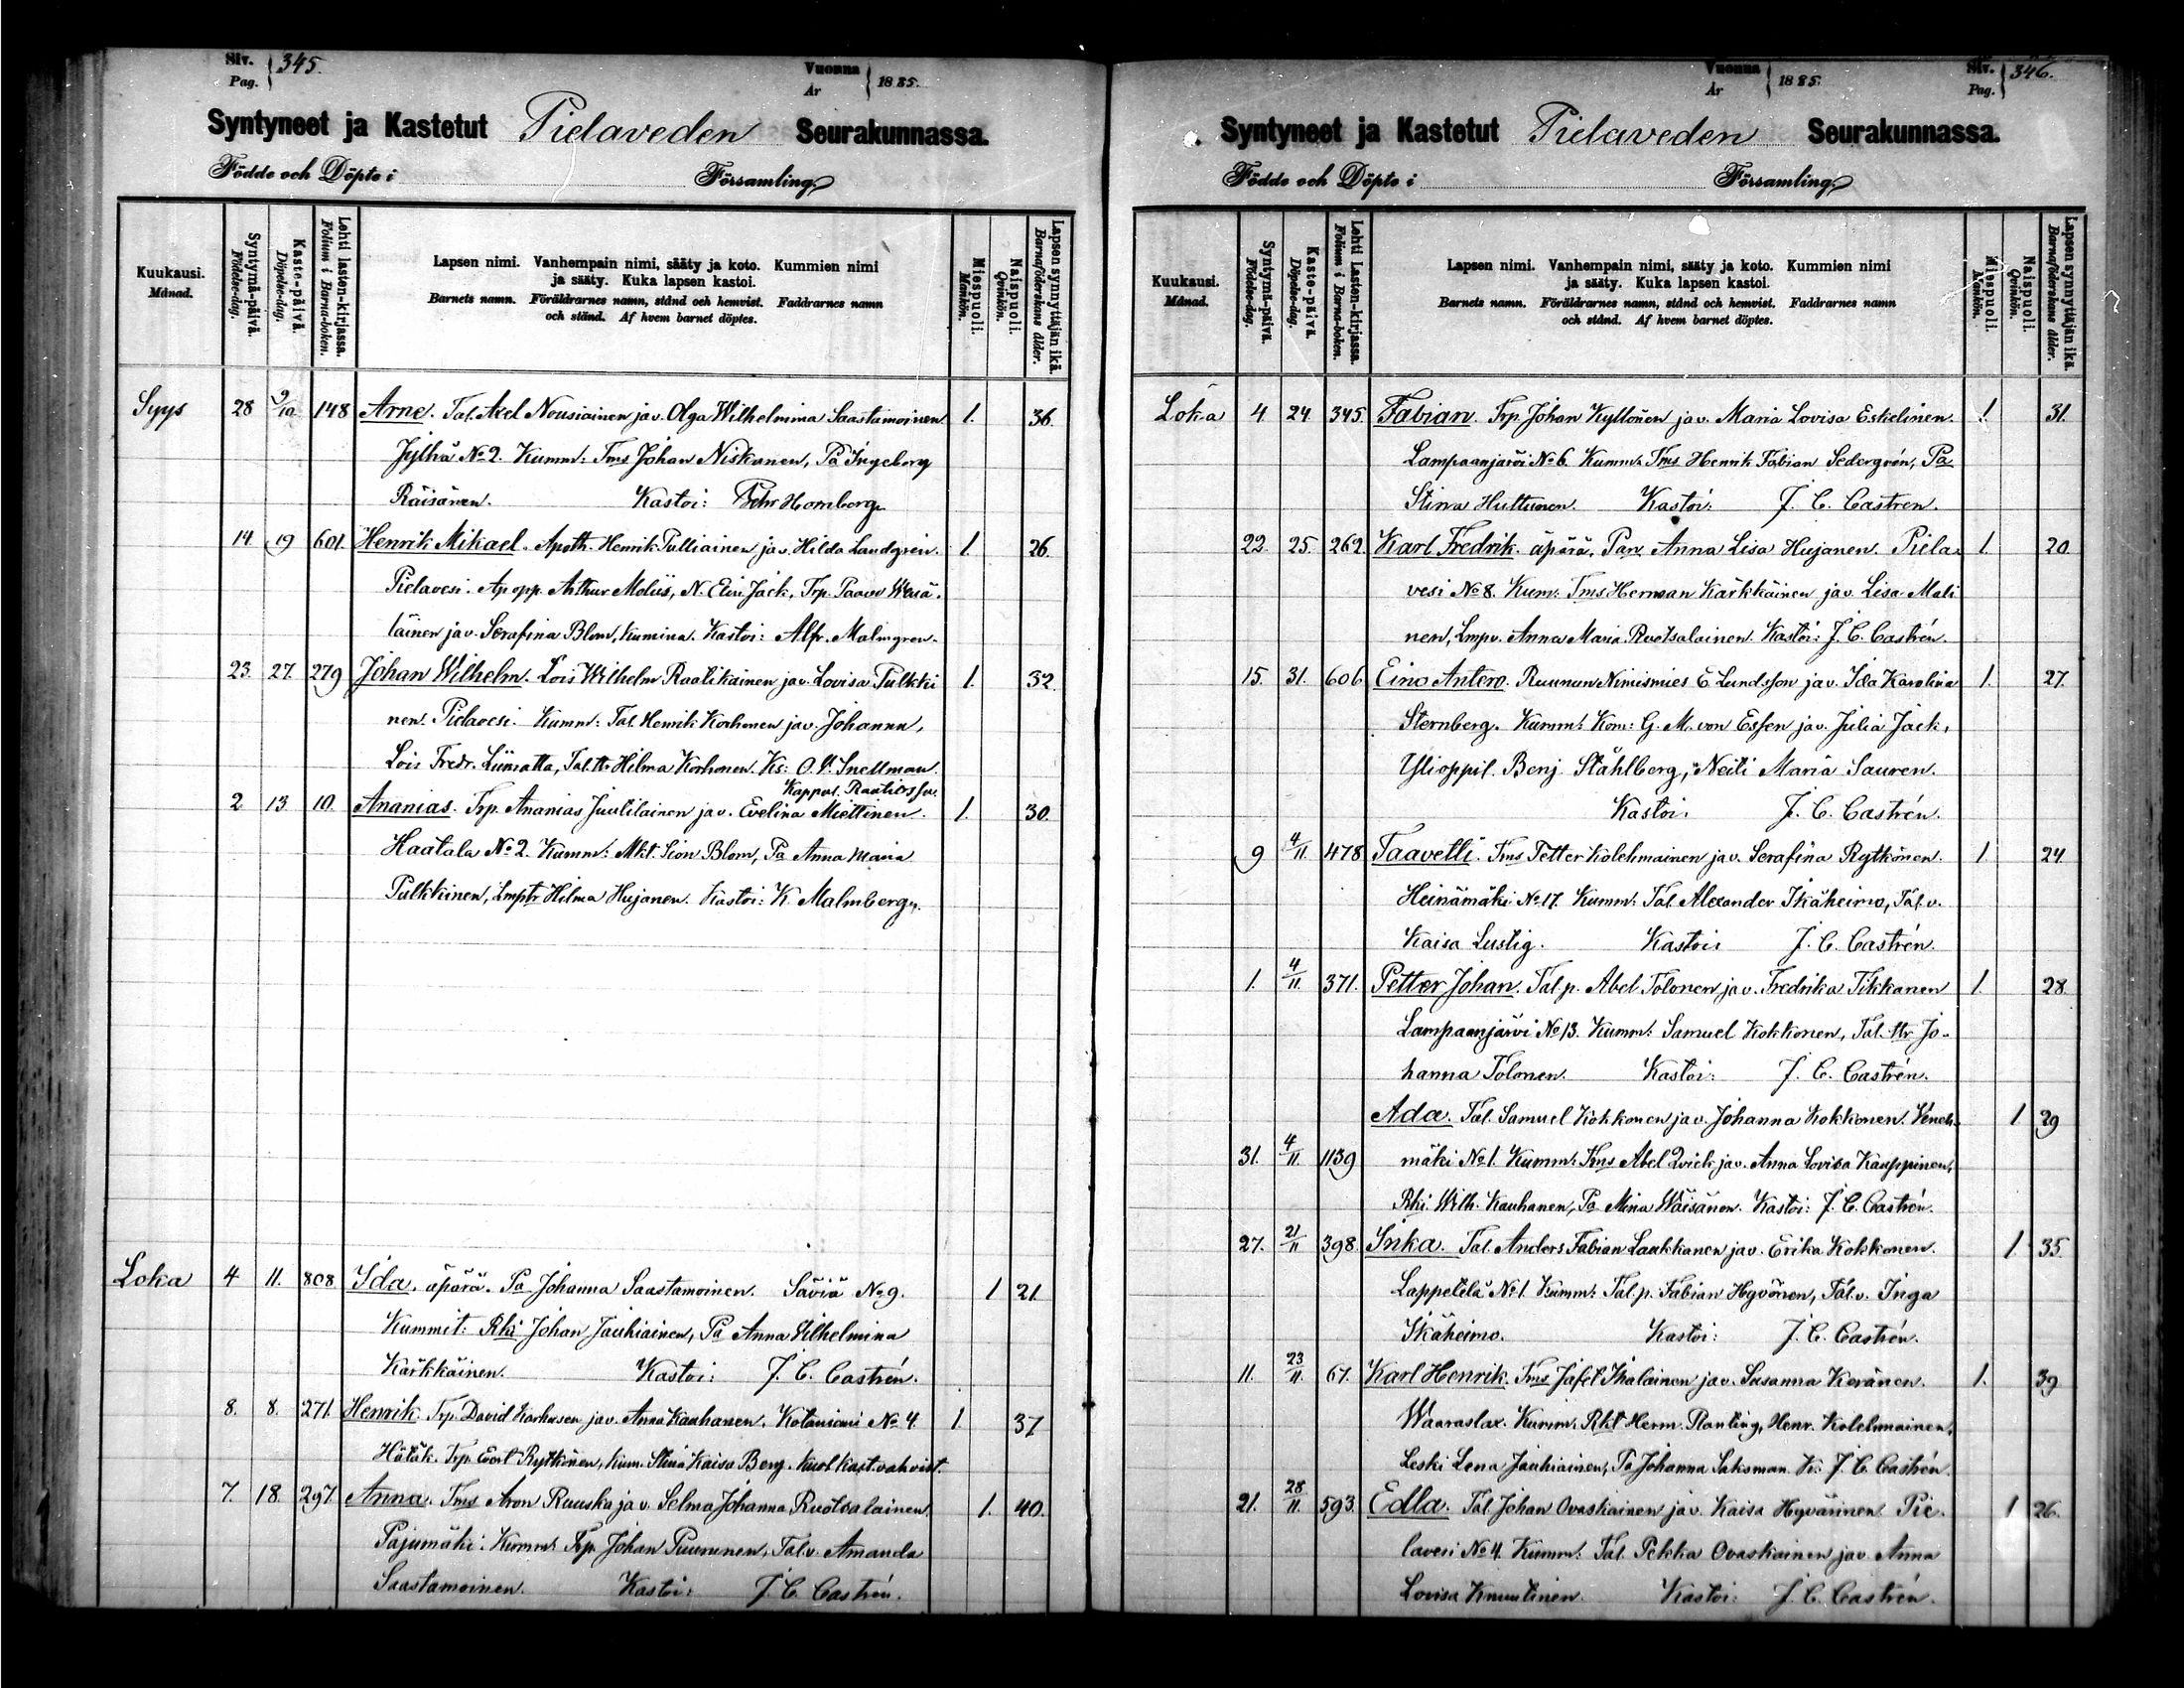 Siv. 345.
Pag.
Vuonna 1885.
År
Syntyneet ja Kastetut Pielaveden Seurakunnassa.
Födde och Döpte i Församling
Kuukausi.
Månad.
Syntymä-päivä.
Födelse-dag.
Kaste-päivä.
Döpelse-dag.
Lehti lasten-kirjassa.
Folium i Barna-boken.
Lapsen nimi. Vanhempain nimi, sääty ja koto. Kummien nimi
ja sääty. Kuka lapsen kastoi.
Barnets namn. Föräldrarnes namn, stånd och hemvist. Faddrarnes namn
och stånd. Af hvem barnet döptes.
Miespuoli.
Mankön.
Naispuoli.
Qvinkön.
Lapsen synnyttäjän ikä.
Barnaföderskans ålder.
Syys 28 9/10 148 Arne. Tal. Axel Nousiainen ja v. Olga Wilhelmina Saastamoinen 1. 36.
Jylhä No 2. Kumm: Tms Johan Niskanen, Pa Ingeborg
Räisänen. Kastoi: Fehr Hornborg
14 19 601. Henrik Mikael. Apoth. Henrik Pulliainen ja v. Hilda Landgrén. 1. 26.
Pielavesi. Ap opp. Arthur Moliis, N. Elin Jack, Trp. Paavo
läinen ja v. Serafina Blom, kumina. Kastoi: Alfr. Malmgren.
23. 27. 279 Johan Wilhelm. Lois Wilhelm Raatikainen ja v. Lovisa Pulkki 1. 32.
nen. Pielavesi. Kumm: Tal. Henrik Korhonen ja v. Johanna,
Lois Fredr. Liimatta, Tal. tr Hilma Korhonen. Ks: O. V. Snellman.
Kappal.
2 13 10. Ananias. Trp. Ananias Juutilainen ja v. Evelina Miettinen. 1. 30.
Haatala No 2. Kumm: Mkt. Sion Blom, Pa Anna Maria
Pulkkinen, Lmptr Hilma Hujanen. Kastoi: K. Malmberg.
Loka 4 11. 808 Ida. äpärä. Pa Johanna Saastamoinen. Säviä No 9. 1 21.
Kummit: Rki Johan Jauhiainen, Pa Anna Wilhelmina
Kärkkäinen. Kastoi: J. C. Castrén.
8. 8. 271. Henrik. Trp. David Korhonen ja v. Anna Kauhanen. Kotaniemi No 4. 1. 37
Hätäk. Trp. Evert Rytkönen, kum. Stina Kaisa Berg. kuol kast. vahvist.
7. 18. 297. Anna. Tms Aron Ruuska ja v. Selma Johanna Ruotsalainen. 1. 40.
Pajumäki. Kumm: Trp. Johan Puurunen, Tal. v. Amanda
Saastamoinen. Kastoi: J. C. Castrén.
Siv. 346.
Pag.
Vuonna 1885.
År
Syntyneet ja Kastetut Pielaveden Seurakunnassa.
Födde och Döpte i Församling
Kuukausi.
Månad.
Syntymä-päivä.
Födelse-dag.
Kaste-päivä.
Döpelse-dag.
Lehti Lasten-kirjassa.
Folium i Barna-boken.
Lapsen nimi. Vanhempain nimi, sääty ja koto. Kummien nimi
ja sääty. Kuka lapsen kastoi.
Barnets namn. Föräldrarnes namn, stånd och hemvist. Faddrarnes namn
och stånd. Af hvem barnet döptes.
Miespuoli.
Mankön.
Naispuoli.
Qvinkön.
Lapsen synnyttäjän ikä.
Barnaföderskans ålder.
Loka 4. 24. 345. Fabian. Trp. Johan Kyllönen ja v. Maria Lovisa Eskelinen. 1. 31.
Lampaanjärvi No 6. Kumm: Tms Henrik Fabian Sedergrén, Pa
Stina Hultunen. Kastoi: J. C. Castrén.
22. 25. 262. Karl Fredrik. äpärä, Pan Anna Lisa Hujanen. Piela 1. 20
vesi No 8. Kum: Tms Herman Kärkkäinen ja v. Lisa Mali
nen, Lmpv. Anna Maria Ruotsalainen. Kastoi: J. C. Castrén.
15. 31. 606 Eino Antero. Ruunun Nimismies E. Lundsson ja v. Ida Karolina 1. 27.
Sternberg. Kumm: Kom: G. M. von Essen ja v. Julia Jack,
Ylioppil. Benj. Ståhlberg, Neiti Maria Sauren.
Kastoi: J. C. Castrén.
9 4/11. 478 Taavetti. Tms Petter Kolehmainen ja v. Serafina Rytkönen. 1. 24
Heinämäki No 17. Kumm: Tal. Alexander Ikäheimo, Tal. v.
Kaisa Lustig. Kastoi: J. C. Castrén.
1. 4/11. 371. Petter Johan. Tal. p. Abel Tolonen ja v. Fredrika Tikkanen 1. 28.
Lampaanjärvi No 13. Kumm: Samuel Kokkonen, Tal. ttr Jo-
hanna Tolonen. Kastoi: J. C. Castrén.
Ada. Tal. Samuel Kokkonen ja v. Johanna Kokkonen. Veneh- 1 29
31. 4/11. 1139 mäki No 1. Kumm: Tms Abel Qvick ja v. Anna Lovisa Kauppinen,
Rki. Wilh. Kauhanen, Pa Mina Wäisänen. Kastoi: J. C. Castrén.
27. 21/11 398 Inka. Tal. Anders Fabian Laukkanen ja v. Erika Kokkonen. 1. 35.
Lappetelä No 1. Kumm: Tal. p. Fabian Hyvönen, Tal. v. Inga
Ikäheimo. Kastoi: J. C. Castrén.
11. 23/11. 67. Karl Henrik. Tms Jafet Ihalainen ja v. Susanna Keränen. 1. 39
Waaraslax. Kumm: Rkt Herm. Ranting, Henr. Kolehmainen,
Leski Lena Jauhiainen, Pa Johanna Saksman. Ks: J. C. Castrén.
21. 28/11. 593. Edla. Tal. Johan Ovaskainen ja v. Kaisa Hyvärinen. Pie- 1 26.
lavesi No 4. Kumm: Tal. Pekka Ovaskainen ja v. Anna
Lovisa Knuutinen. Kastoi: J. C. Castrén.